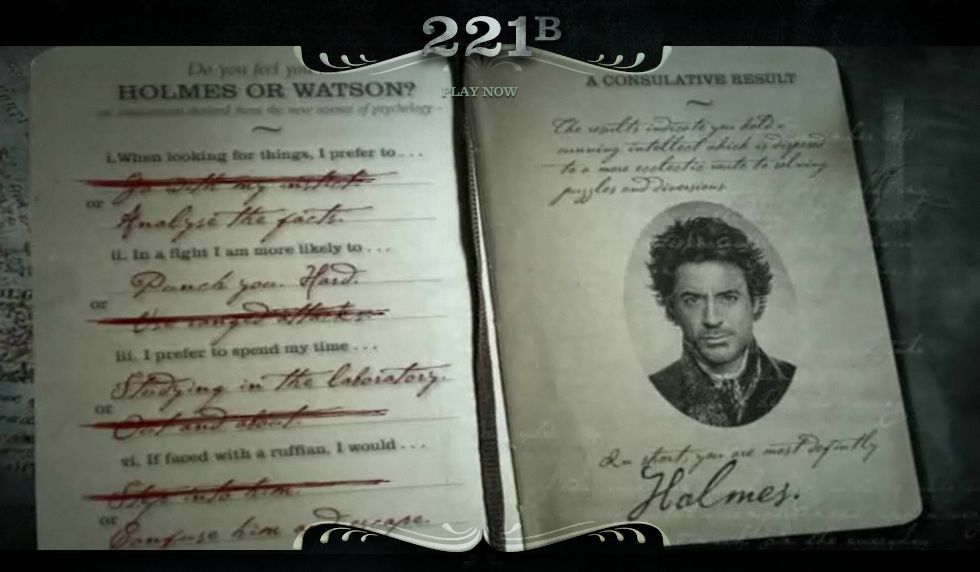 221B
PLAY NOW
Do you feel you
HOLMES OR WATSON?
an examination derived from the new science of psychology
i. When looking for things, I prefer to...
Go with my instinct.
or
Analyse the facts.
ii. In a fight I am more likely to...
Punch you. Hard.
or
Use ranged attacks.
iii. I prefer to spend my time...
Studying in the laboratory.
or
Out and about.
vi. If faced with a ruffian, I would...
Slye into him.
or
Confuse him and escape.
A CONSULATIVE RESULT
The results indicate you hold a
cunning intellect which is disposed
to a more ecclectic route to solving
puzzles and diversions
In short, you are most definitly
Holmes.